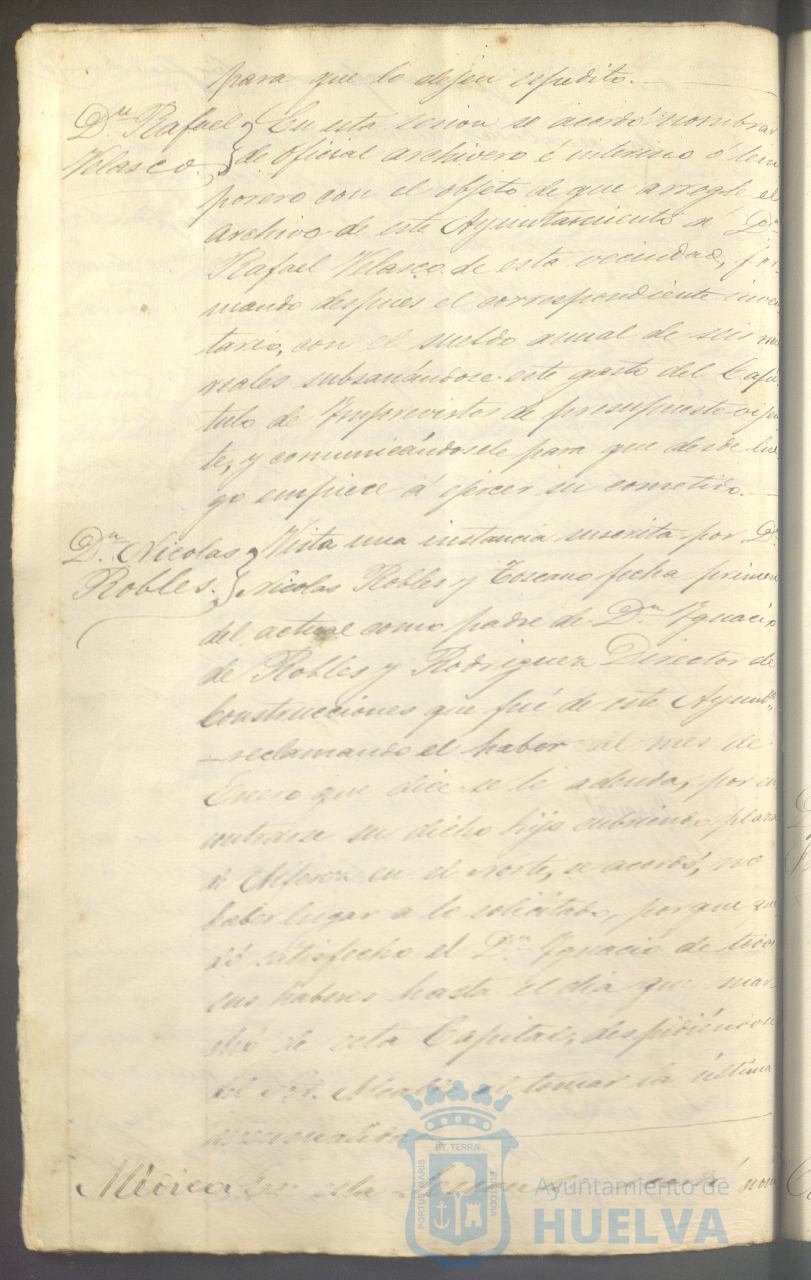 para que lo dejen espedito.
Dn. Rafael
Velasco.
En esta sesion se acordó nombrar
de oficial archivero é interino ó tem
porero con el objeto de que arregle el
archivo de este Ayuntamiento á Dn.
Rafael Velasco de esta vecindad, for-
mando despues el correspondiente inven
tario, con el sueldo anual de seis mil
reales subsanándose este gasto del Capí
tulo de Imprevistos de presupuesto vijen
te, y comunicándosele para que desde lue
go empiece á ejercer su cometido.
Dn. Nicolas
Robles.
Vista una instancia suscrita por Dn.
Nicolas Robles y Toscano fecha primero
del actual como padre de Dn. Ygnacio
de Robles y Rodriguez Director de
Construcciones que fué de este Ayunto.
reclamando el haber del mes de
Enero que dice se le adeuda, por en
contrarse su dicho hijo cubriendo plaza
de Alferez en el Norte, se acordó, no
haber lugar á lo solicitado, porque que
dó satisfecho el Dn. Ygnacio de todos
sus haberes hasta el dia que mar
chó de esta Capital, despidiéndose
del Sor. Alcalde al tomar la última
Música
En esta
PORTUS MARIS
ET TERRÆ
CUSTODIA
Ayuntamiento de
HUELVA